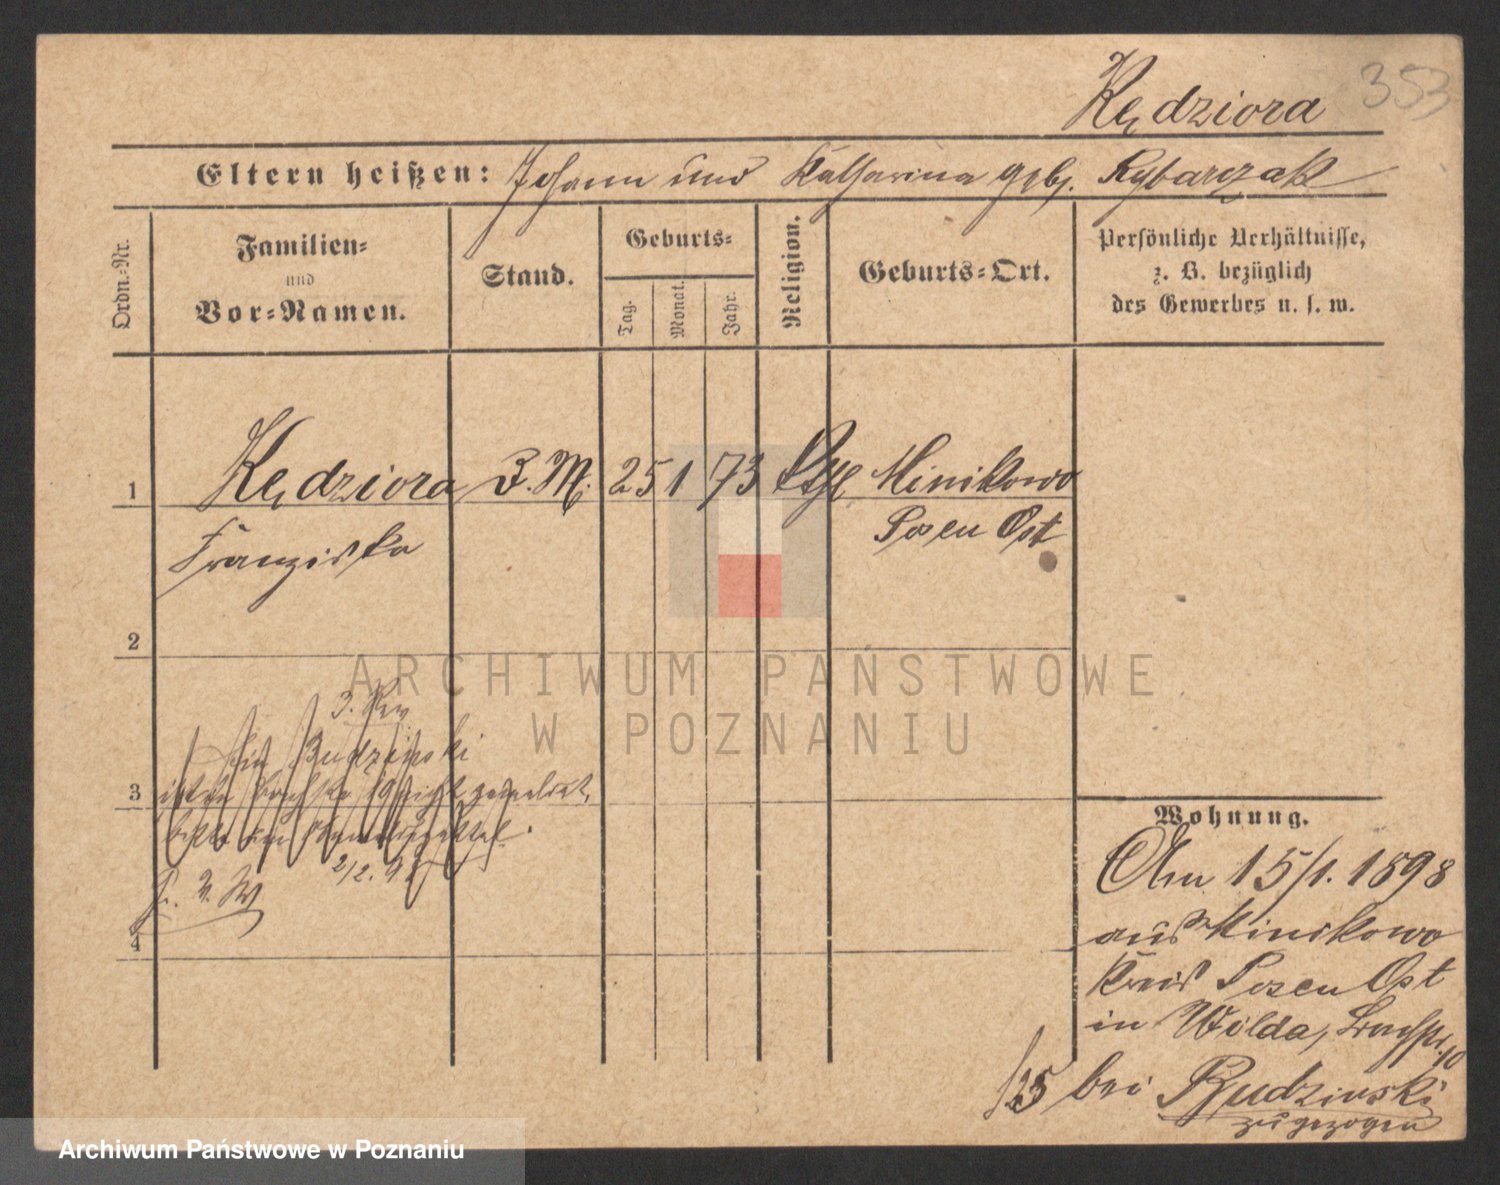 Kędziora 353
Eltern heißen: Johann und Katharina geb. Rybarczak
Ordn.-Nr.
Familien-
und
Vor-Namen.
Stand.
Geburts-
Tag.
Monat.
Jahr.
Religion.
Geburts-Ort.
Persönliche Verhältnisse,
z. B. bezüglich
des Gewerbes u. s. w.
1 Kędziora 25 1 73 Minikowo
Franziska
Posen Ost
2
ARCHIWUM PAŃSTWOWE
W POZNANIU
Budzinski
3
2/2. 98
4
Wohnung.
Am 15/1. 1898
aus Minikowo
Kreis Posen Ost
in Wilda,
bei Budzinski
zugezogen
Archiwum Państwowe w Poznaniu